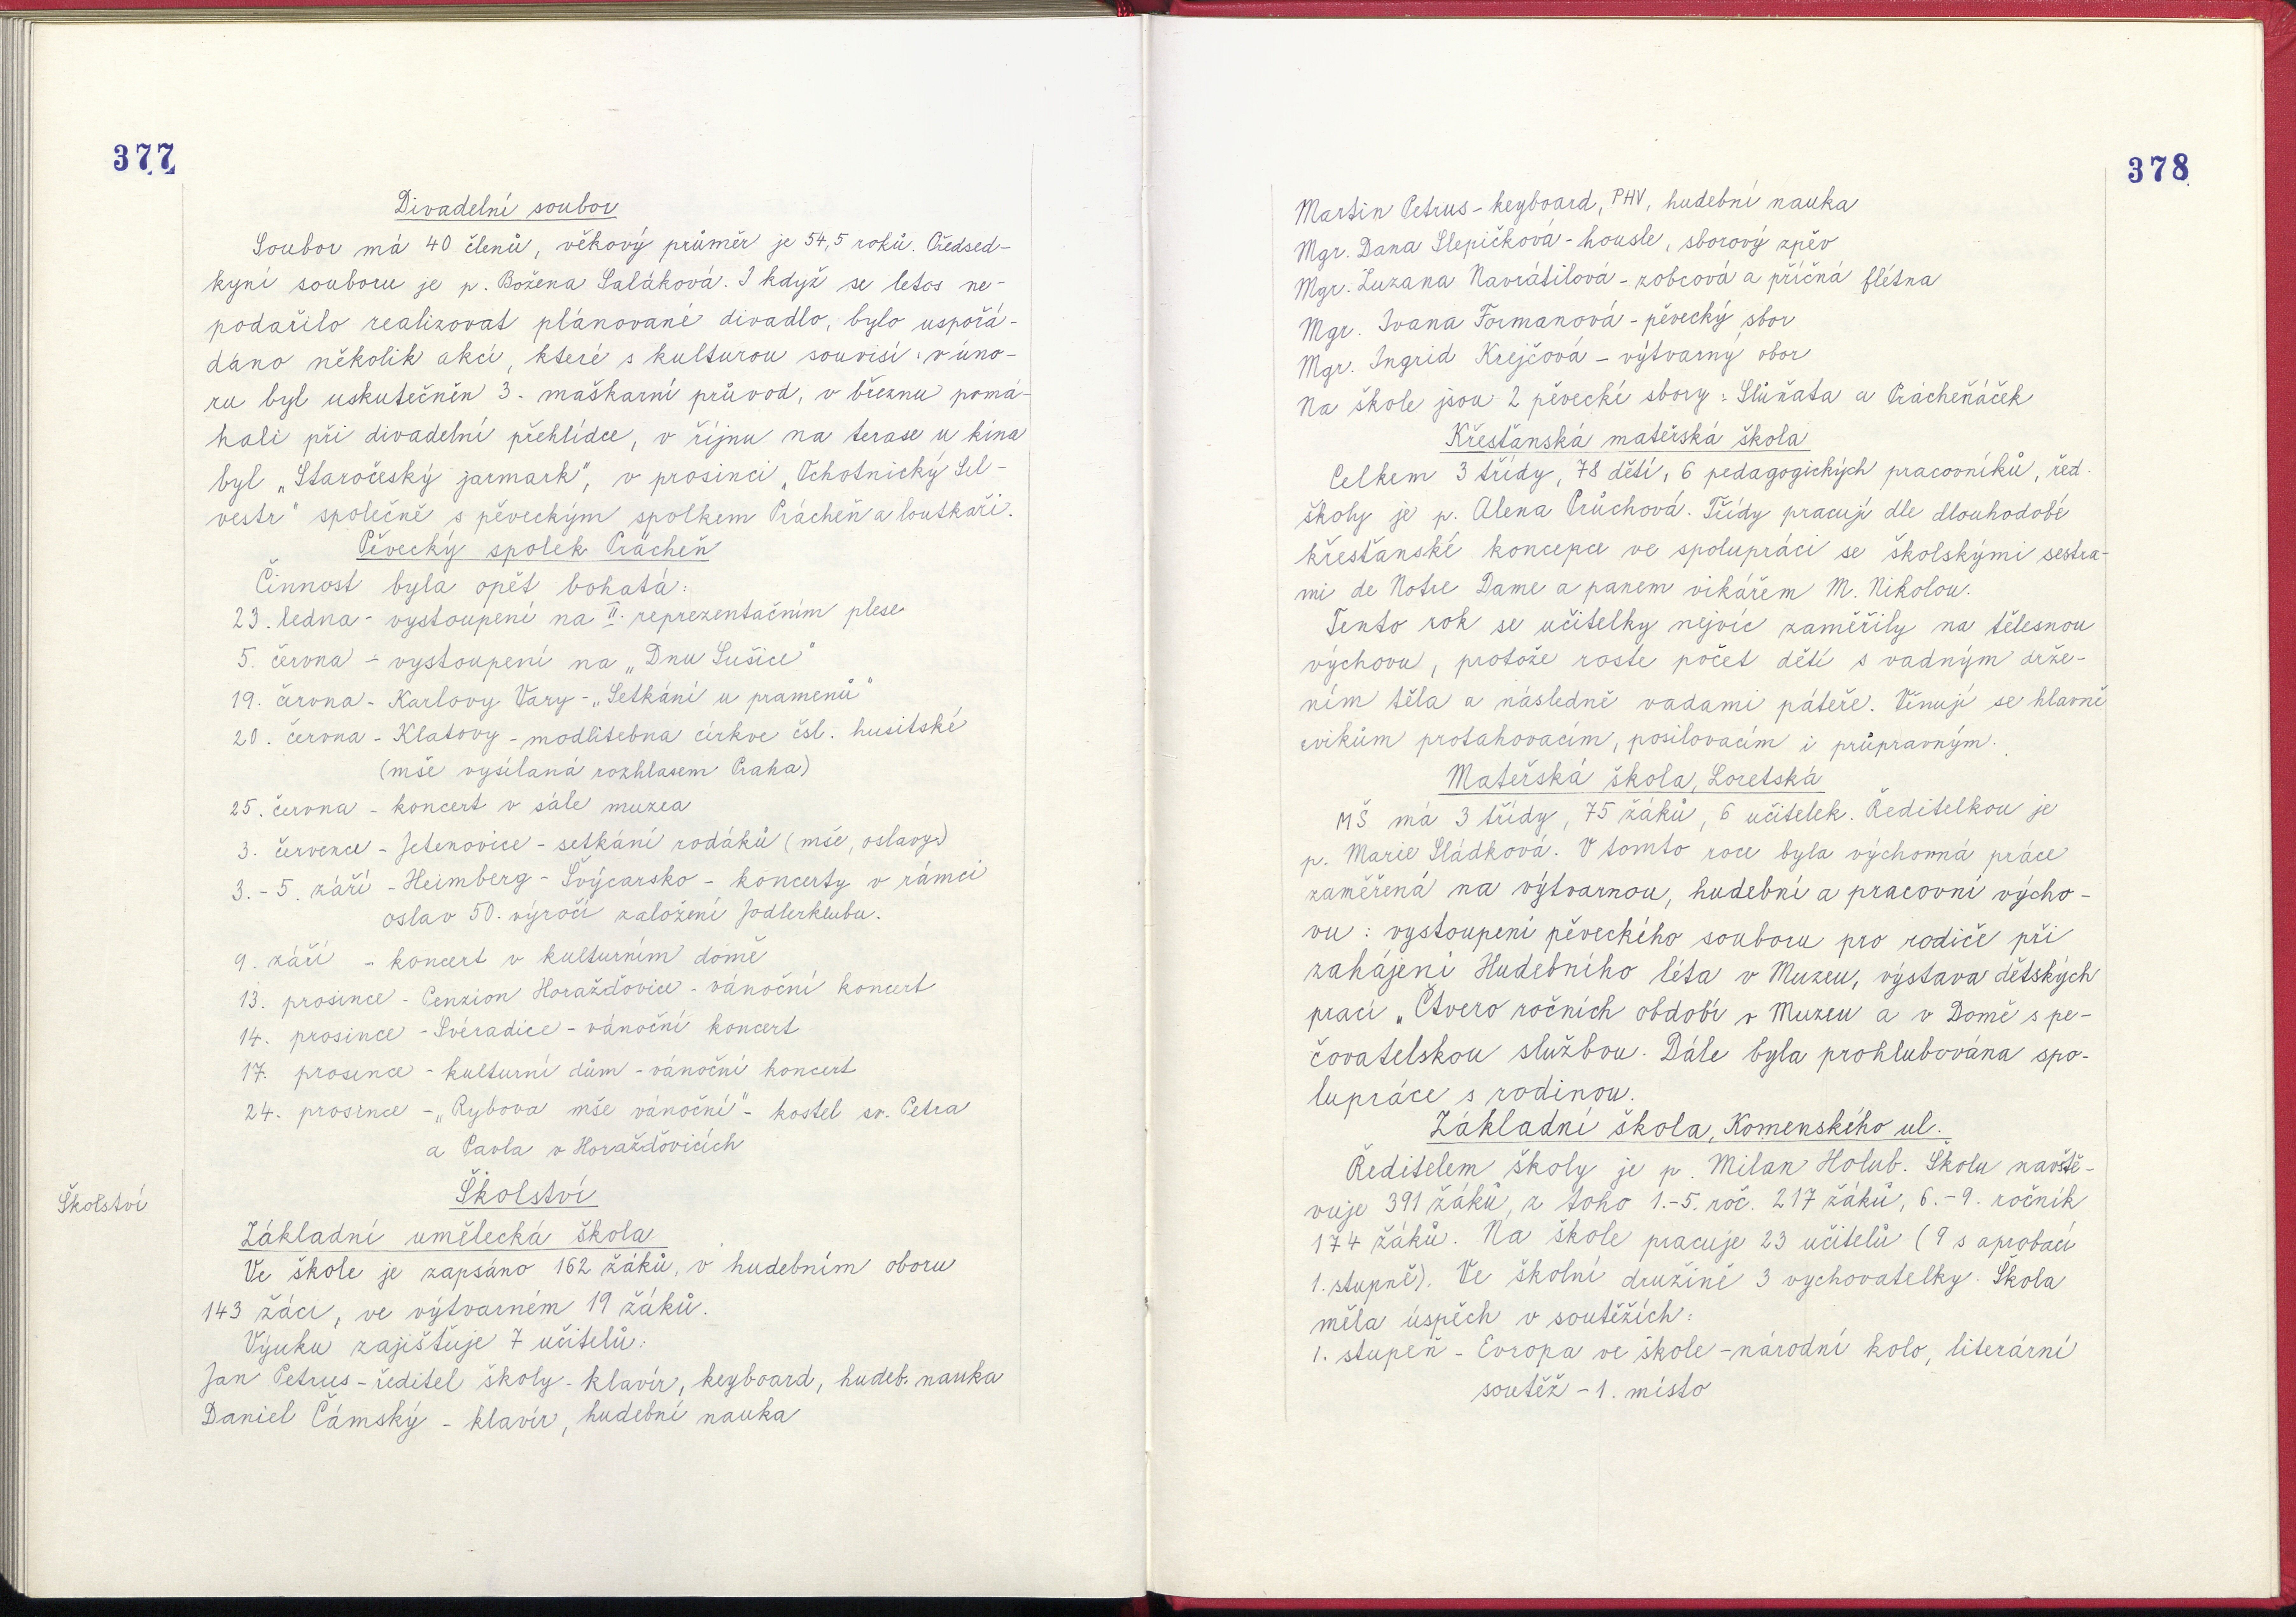 377
Divadelní soubor
Soubor má 40 členů, věkový průměr je 54,5 roků. Předsed-
kyní souboru je p. Božena Saláková. I když se letos ne-
podařilo realizovat plánované divadlo, bylo uspořá-
dáno několik akcí, které s kulturou souvisí: v úno-
ru byl uskutečněn 3. maškarní průvod, v březnu pomá-
hali při divadelní přehlídce, v říjnu na terase u kina
byl „Staročeský jarmark", v prosinci „Ochotnický Sil-
vestr" společně s pěveckým spolkem Prácheň a loutkaři.
Pěvecký spolek Prácheň
Činnost byla opět bohatá:
23. ledna - vystoupení na II. reprezentačním plese
5. června - vystoupení na „Dnu Sušice"
19. června - Karlovy Vary - „Setkání u pramenů"
20. června - Klatovy - modlitebna církve čsl. husitské
(mše vysílaná rozhlasem Praha)
25. června - koncert v sále muzea
3. července - Jetenovice - setkání rodáků (mše, oslavy)
3. - 5. září - Heimberg - Švýcarsko - koncerty v rámci
oslav 50. výročí založení Jodlerklubu.
9. září - koncert v kulturním domě
13. prosince - Penzion Horažďovice - vánoční koncert
14. prosince - Svéradice - vánoční koncert
17. prosince - kulturní dům - vánoční koncert
24. prosince - „Rybova mše vánoční" - kostel sv. Petra
a Pavla v Horažďovicích
Školství
Školství
Základní umělecká škola
Ve škole je zapsáno 162 žáků, v hudebním oboru
143 žáci, ve výtvarném 19 žáků.
Výuku zajišťuje 7 učitelů:
Jan Petrus - ředitel školy - klavír, keyboard, hudeb. nauka
Daniel Čámský - klavír, hudební nauka
378
Martin Petrus - keyboard, PHV, hudební nauka
Mgr. Dana Slepičková - housle, sborový zpěv
Mgr. Zuzana Navrátilová - zobcová a příčná flétna
Mgr. Ivana Formanová - pěvecký sbor
Mgr. Ingrid Krejčová - výtvarný obor
Na škole jsou 2 pěvecké sbory: Slůňata a Prácheňáček
Křesťanská mateřská škola
Celkem 3 třídy, 78 dětí, 6 pedagogických pracovníků, řed.
školy je p. Alena Průchová. Třídy pracují dle dlouhodobé
křesťanské koncepce ve spolupráci se školskými sestra-
mi de Notre Dame a panem vikářem M. Nikolou.
Tento rok se učitelky nejvíc zaměřily na tělesnou
výchovu, protože roste počet dětí s vadným drže-
ním těla a následně vadami páteře. Věnují se hlavně
cvikům protahovacím, posilovacím i průpravným.
Mateřská škola, Loretská
MŠ má 3 třídy, 75 žáků, 6 učitelek. Ředitelkou je
p. Marie Sládková. V tomto roce byla výchovná práce
zaměřená na výtvarnou, hudební a pracovní výcho-
vu: vystoupení pěveckého souboru pro rodiče při
zahájení Hudebního léta v Muzeu, výstava dětských
prací „Čtvero ročních období v Muzeu a v Domě s pe-
čovatelskou službou. Dále byla prohlubována spo-
lupráce s rodinou.
Základní škola, Komenského ul.
Ředitelem školy je p. Milan Holub. Školu navště-
vuje 391 žáků, z toho 1.-5. roč. 217 žáků, 6.-9. ročník
174 žáků. Na škole pracuje 23 učitelů (9 s aprobací
1. stupně). Ve školní družině 3 vychovatelky. Škola
měla úspěch v soutěžích:
1. stupeň - Evropa ve škole - národní kolo, literární
soutěž - 1. místo